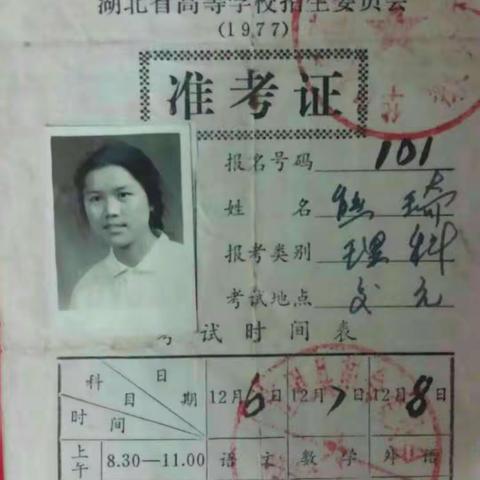 湖北省高等学校招生委员会
(1977)
准考证
报名号码 101
姓 名 熊
报考类别 理科
考试地点
考试时间表
科目 日期 时间 12月6日 12月7日 12月8日
上午 8.30—11.00 语文 数学 外语